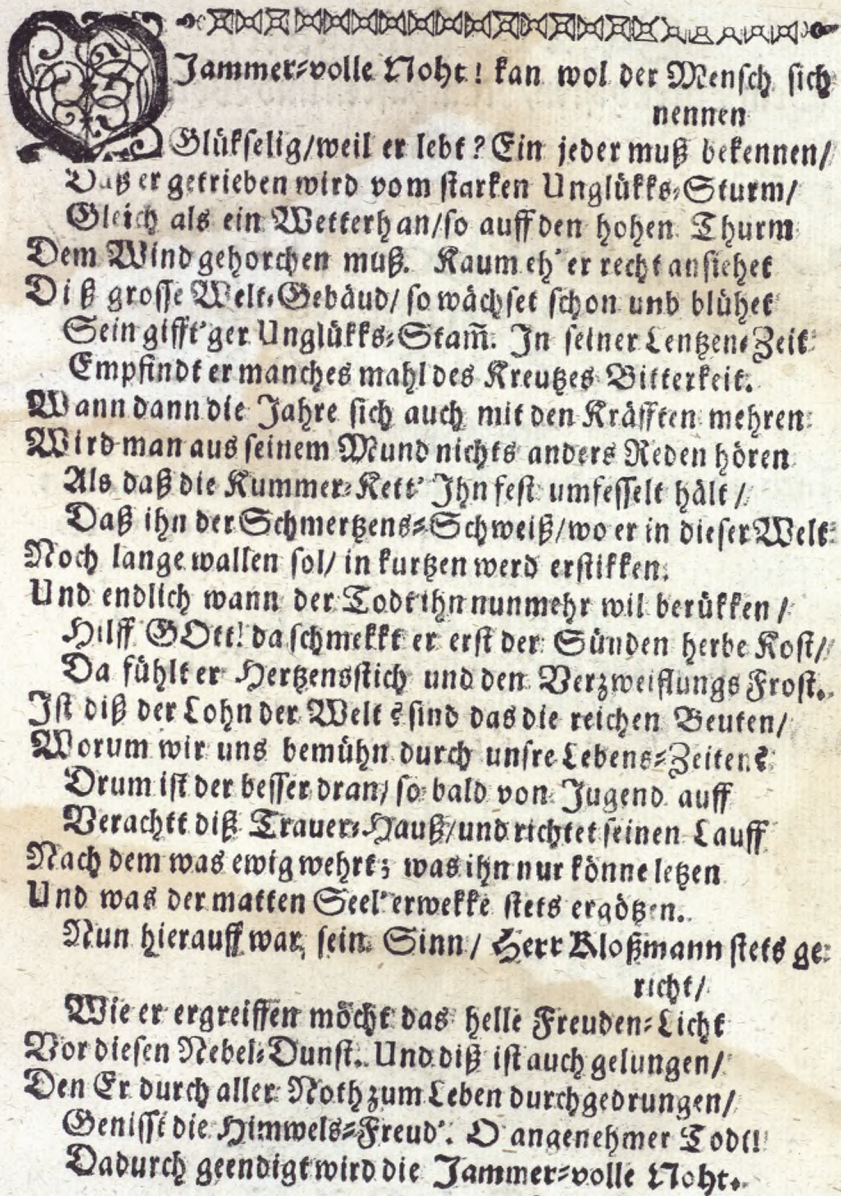 O Jammer=volle Noht! kan wol der Mensch sich
nennen
Glükselig/weil er lebt? Ein jeder muß bekennen/
Daß er getrieben wird vom starken Unglükks=Sturm/
Gleich als ein Wetterhan/so auff den hohen Thurm
Dem Wind gehorchen muß. Kaum eh' er recht ansiehet
Diß grosse Welt=Gebäud/ so wächset schon und blühet
Sein gifft'ger Unglükks=Stam̄. In seiner Lentzen=Zeit
Empfindt er manches mahl des Kreutzes Bitterkeit.
Wann dann die Jahre sich auch mit den Kräfften mehren
Wird man aus seinem Mund nichts anders Reden hören
Als daß die Kummer=Kett' Ihn fest umfesselt hält/
Daß ihn der Schmertzens=Schweiß/wo er in dieser Welt
Noch lange wallen sol/ in kurtzen werd erstikken.
Und endlich wann der Todt ihn nunmehr wil berükken/
Hilff GOtt! da schmekkt er erst der Sünden herbe Kost/
Da fühlt er Hertzensstich und den Verzweiflungs Frost.
Ist diß der Lohn der Welt? sind das die reichen Beuten/
Worum wir uns bemühn durch unsre Lebens=Zeiten?
Drum ist der besser dran/ so bald von Jugend auff
Verachtt diß Trauer=Hauß/und richtet seinen Lauff
Nach dem was ewig wehrt; was ihn nur könne letzen
Und was der matten Seel' erwekke stets ergötzen.
Nun hierauff war sein Sinn/ Herr Kloßmann stets ge=
richt/
Wie er ergreiffen möcht das helle Freuden=Licht
Vor diesen Nebel=Dunst. Und diß ist auch gelungen/
Den Er durch aller Noth zum Leben durchgedrungen/
Genisst die Himwels=Freud'. O angenehmer Todt!
Dadurch geendigt wird die Jammer=volle Noht.